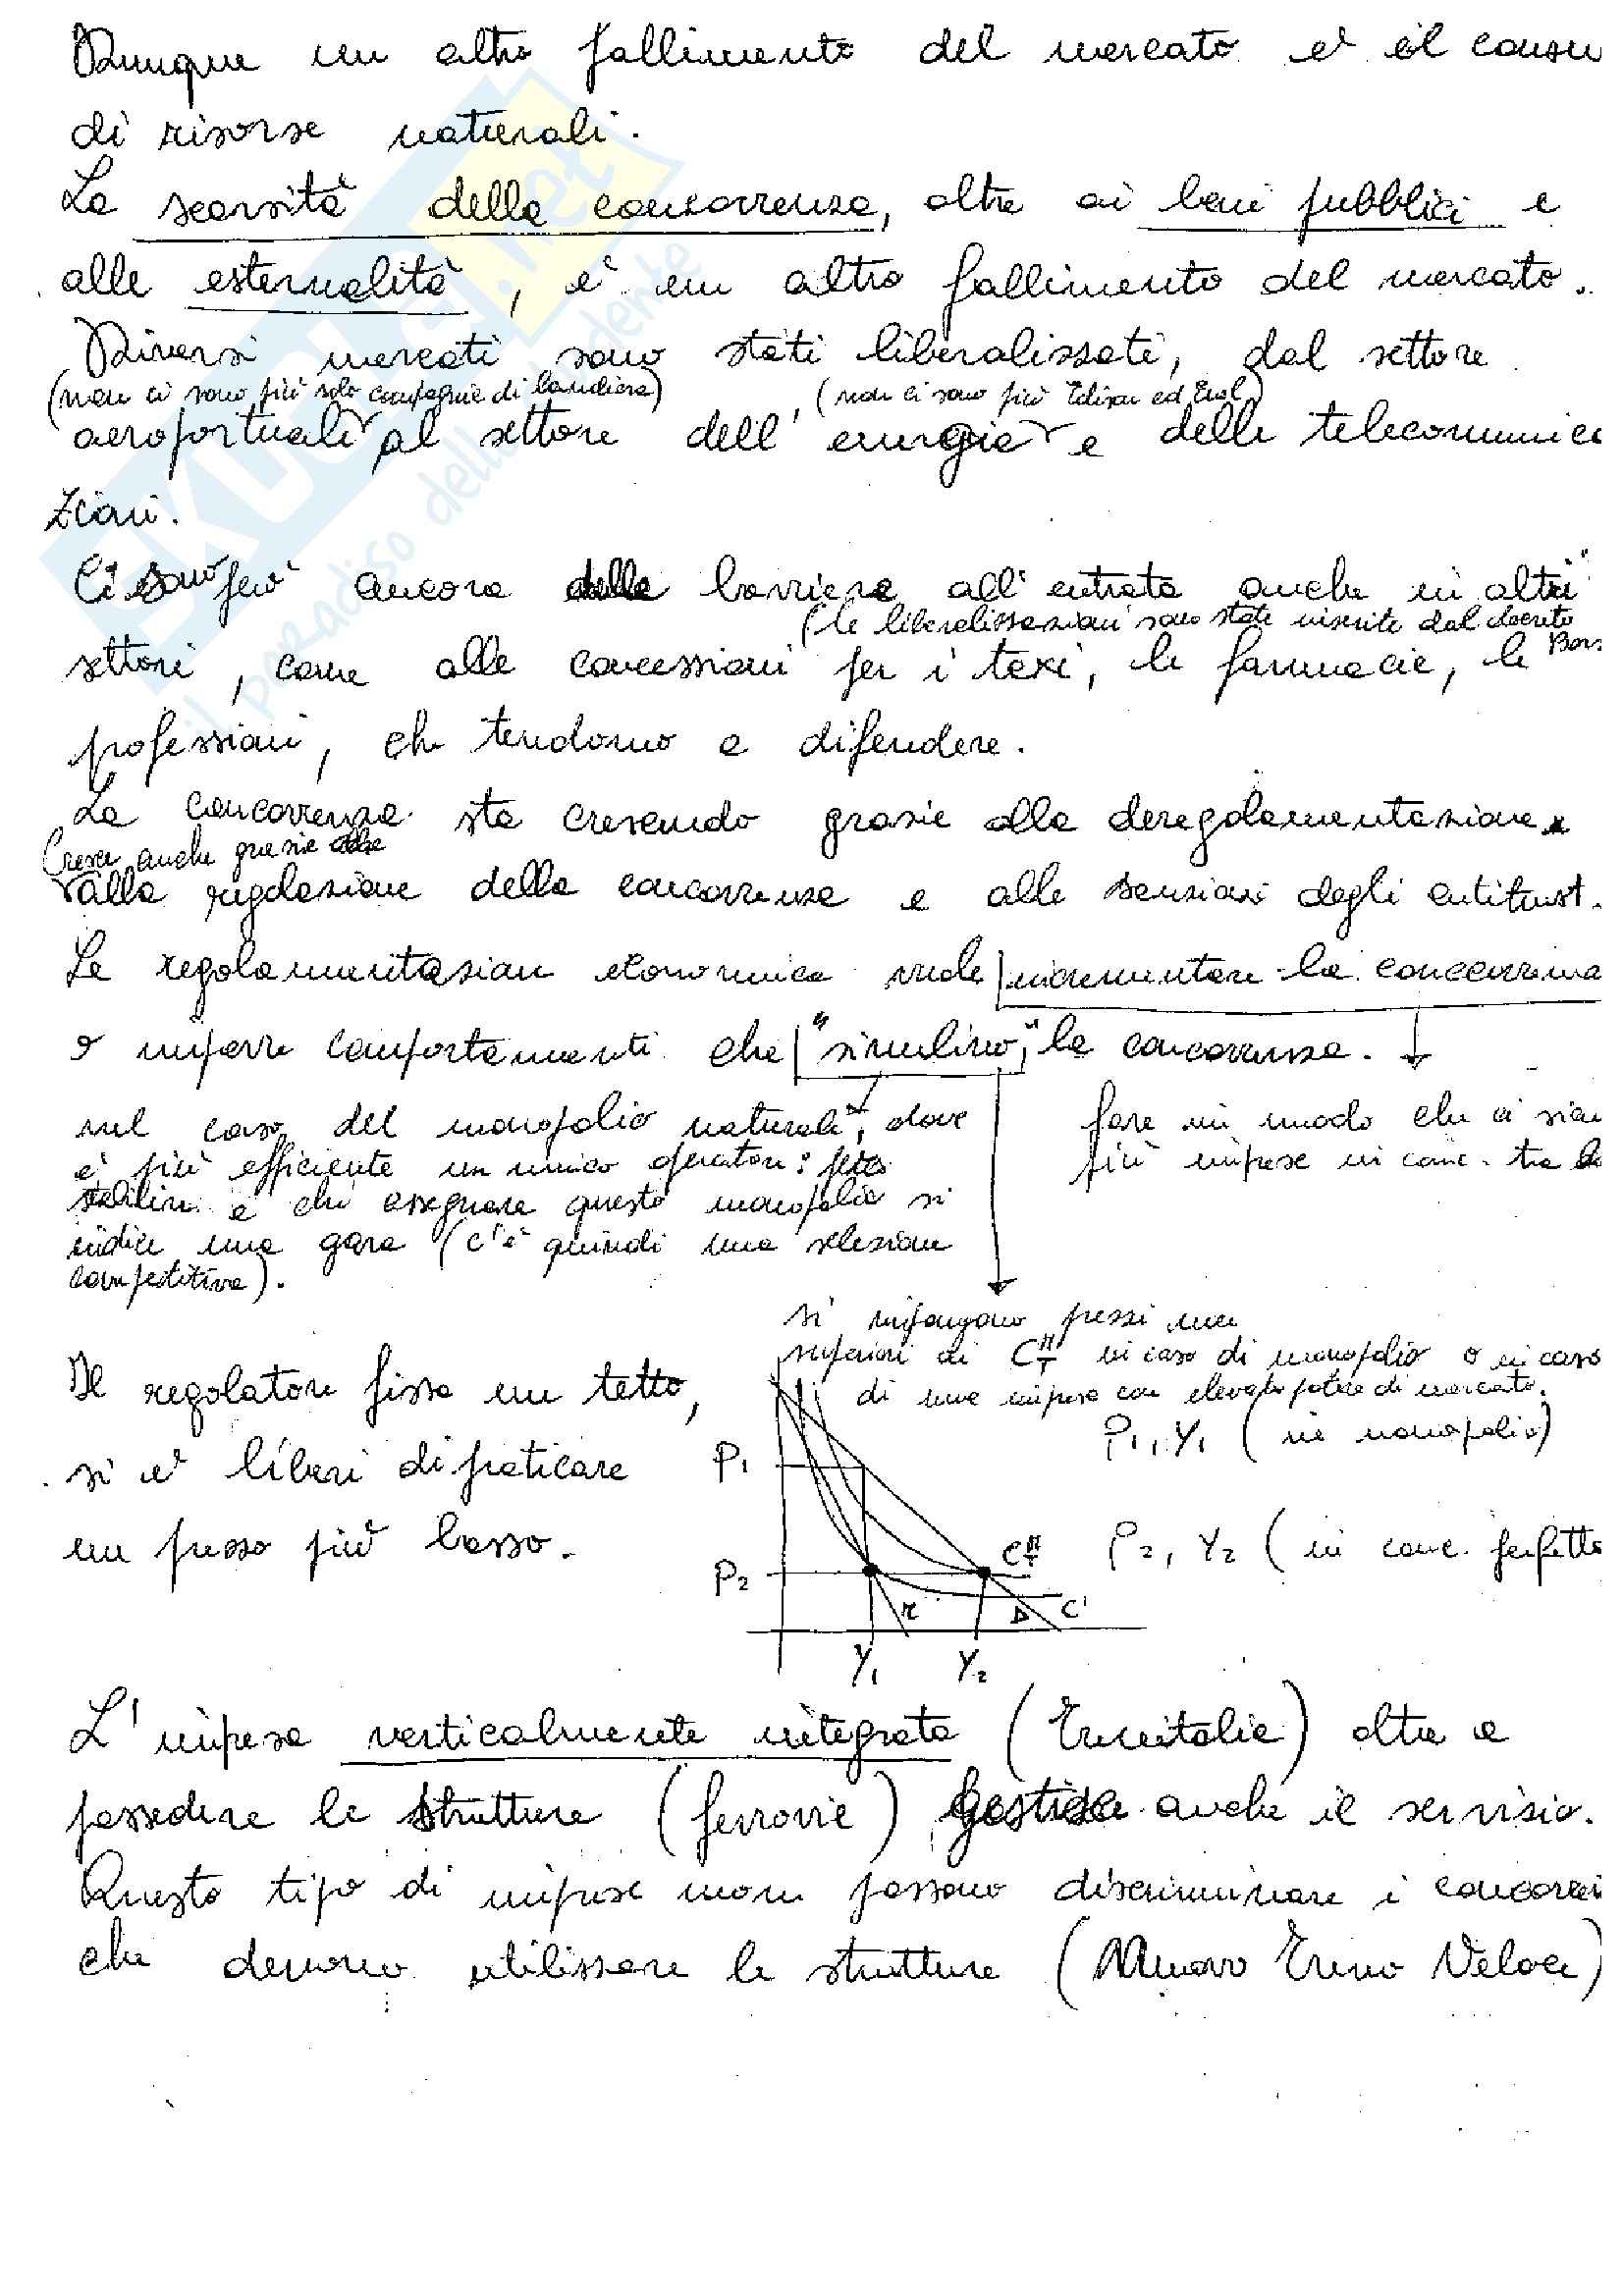 Dunque un altro fallimento del mercato e' il consu
di risorse naturali.
La scarsità della concorrenza, oltre ai beni pubblici e
alle esternalità, e' un altro fallimento del mercato.
Diversi mercati sono stati liberalizzati, dal settore
(non ci sono più solo compagnie di bandiera) (non ci sono più Edison ed Enel)
aeroportuale al settore dell'energia e delle telecomunica
zioni.
Ci sono però ancora delle barriere all'entrata anche in altri
(le liberalizzazioni sono state inserite dal decreto
settori, come alle concessioni per i taxi, le farmacie, le Bers
professioni, che tendono a difendere.
La concorrenza sta crescendo grazie alla deregolamentazione.
Cresce anche grazie
alla regolazione della concorrenza e alle sanzioni degli antitrust.
La regolamentazione economica vuole incrementare la concorrenza
o imporre comportamenti che "simulino" la concorrenza.
nel caso del monopolio naturale, dove
è più efficiente un unico operatore: per
stabilire a chi assegnare questo monopolio si
indice una gara (c'è quindi una selezione
competitiva).
fare in modo che ci sian
più imprese in conc. tra lo
si impongono prezzi non
superiori ai C in caso di monopolio o in caso
di una impresa con elevato potere di mercato.
Il regolatore fissa un tetto,
si e' liberi di praticare
un prezzo più basso.
P1, Y1 (in monopolio)
P2, Y2 (in conc. perfetta
P1
P2
C
R
D
C'
Y1
Y2
L'impresa verticalmente integrata (Trenitalia) oltre a
possedere le strutture (ferrovie) gestisce anche il servizio.
Questo tipo di imprese non possono discriminare i concorren
che devono utilizzare le strutture (Nuovo Treno Veloce)
il paradiso dello